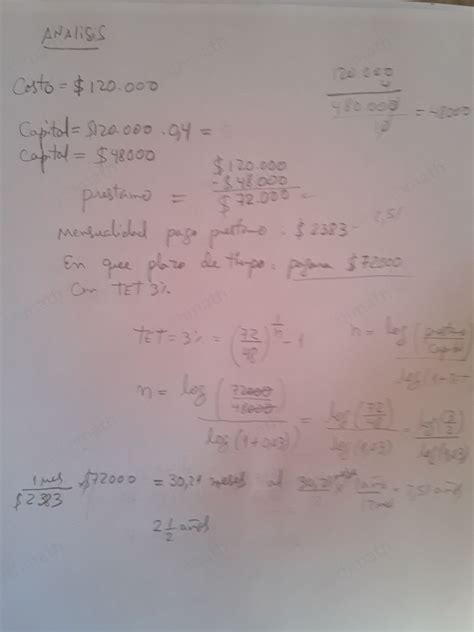 ANALISIS
Costo = $120.000
120.000
4
480.000
10
= 48000
Capital = $120.000 . 0,4 =
Capital = $48000
$120.000
- $48.000
prestamo = $72.000
Mensualidad pago prestamo : $2383
2,5/
En que plazo de tiempo : pagara $72000
Con TET 3%
TET = 3% = (72/48)^(1/n) - 1
n = log (prestamo/Capital)
log (1+TET
n = log (72000/48000) / log (1+0,03) = log (72/48) / log (1,03) = log (3/2) / log (1,03)
1 mes/$2383 . $72000 = 30,21 meses
1 año
12 mes
2,51 años
2 1/2 años